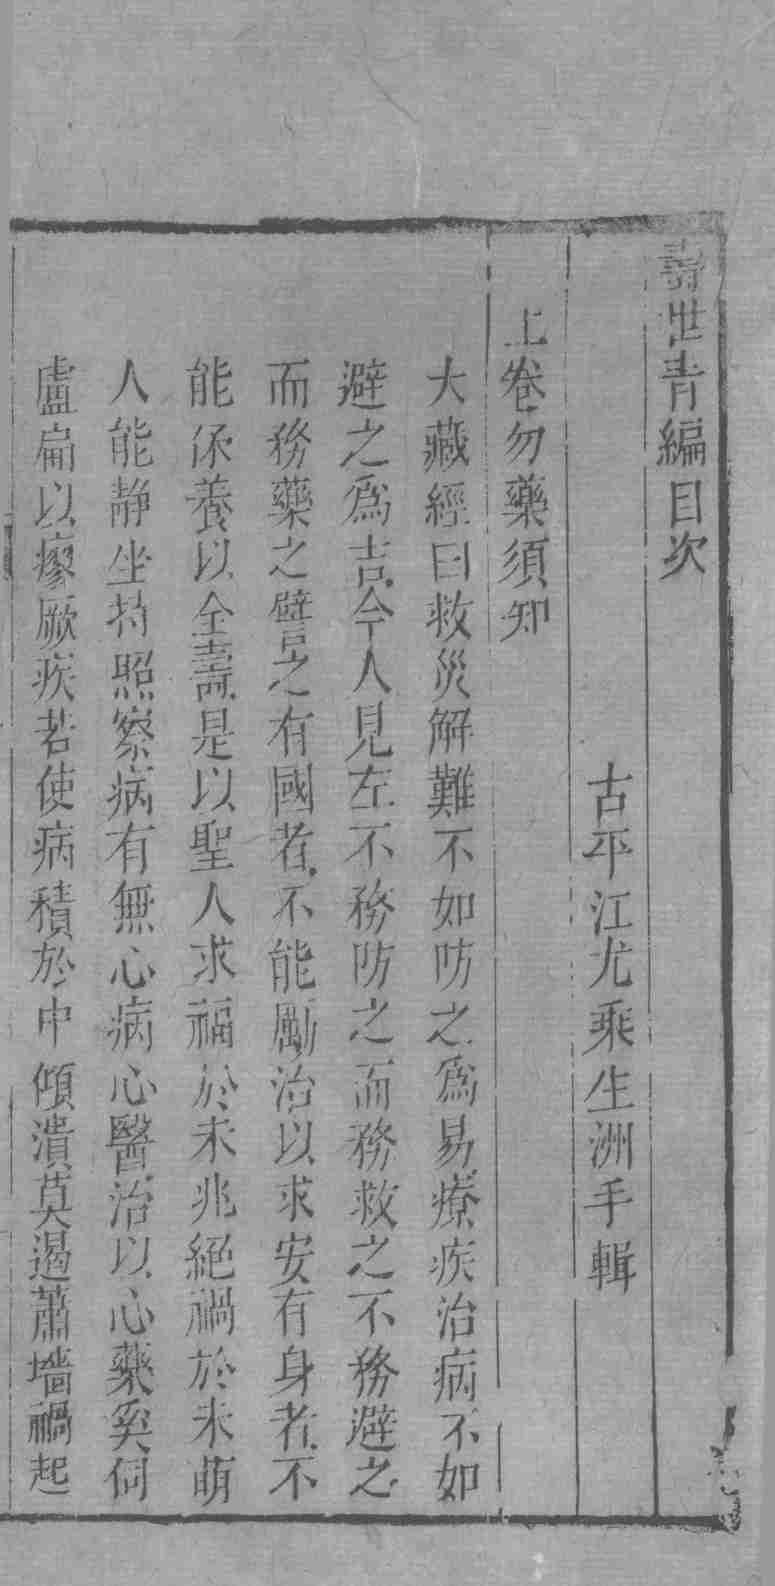 壽世青編目次
古平江尤乘生洲手輯
上卷勿藥須知
大藏經曰救災解難不如防之爲易療疾治病不如
避之爲吉今人見左不務防之而務救之不務避之
而務藥之譬之有國者不能勵治以求安有身者不
能保養以全壽是以聖人求福於未兆絕禍於未萌
人能静坐持照察病有無心病心醫治以心藥奚伺
盧扁以瘳厥疾若使病積於中傾潰莫遏蕭墻禍起